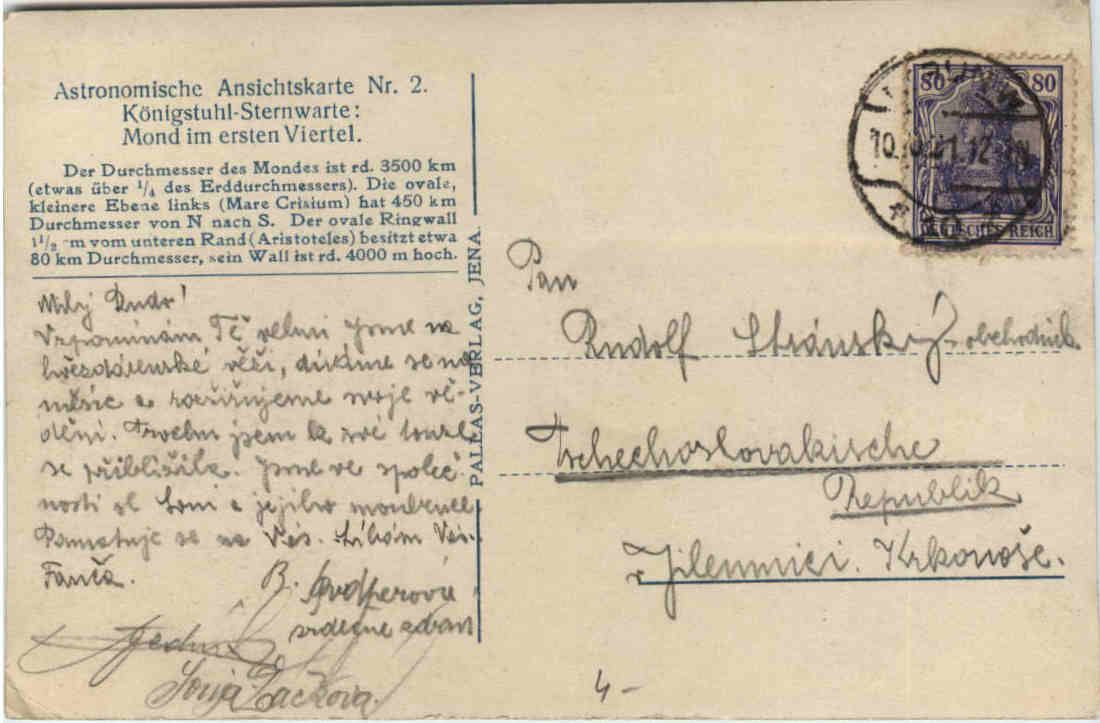 Astronomische Ansichtskarte Nr. 2.
Königstuhl-Sternwarte:
Mond im ersten Viertel.
Der Durchmesser des Mondes ist rd. 3500 km
(etwas über 1/4 des Erddurchmessers). Die ovale,
kleinere Ebene links (Mare Crisium) hat 450 km
Durchmesser von N nach S. Der ovale Ringwall
1 1/2 m vom unteren Rand (Aristoteles) besitzt etwa
80 km Durchmesser, sein Wall ist rd. 4000 m hoch.
Milý Rudo!
Vzpomínám Tě velmi jsme na
hvězdárenské věži, díváme se na
měsíc a rozšiřujeme svoje vě-
dění. jsem k své touze
se přiblížila. Jsme ve společ-
nosti sl. Soni a jejího
Pamatuje se na Vás. Líbám Vás
Fanča.
B.
srdečně zdraví
Sonja
PALLAS-VERLAG, JENA.
80 80
10. 21. 12
DEUTSCHES REICH
Pan
Rudolf Stránský obchodník
Tschechoslovakische
Republik
v Jilemnici. Krkonoše.
4-